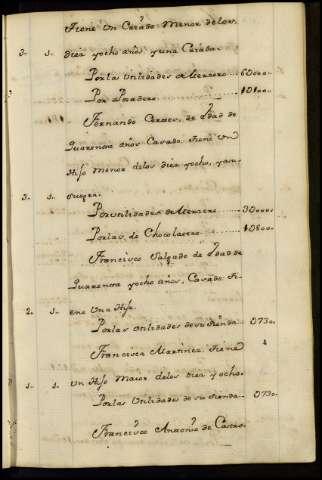 tiene Un Criado Menor delos
3. s. diez yocho años yuna Criada.
Porlas Utilidades de Arriero 600..
Por Panadero 101..
Fernando de Edad de
Quarenta años Casado tiene Un
Hijo Menor delos diez yocho, yuna
3. s. suegra.
Por utilidades de Arriero 300..
Porlas de Chocolatero 1080..
Francisco Salgado de Edad de
Quarenta yocho años, Casado ti-
2. s. ene Un Hijo.
Porlas Utilidades de su tienda 0730.
Francisca Martinez tiene
1. s. Un Hijo Maior delos diez yocho.
Porlas Utilidades de su tienda 0730.
Francisco Antonio de Castro.